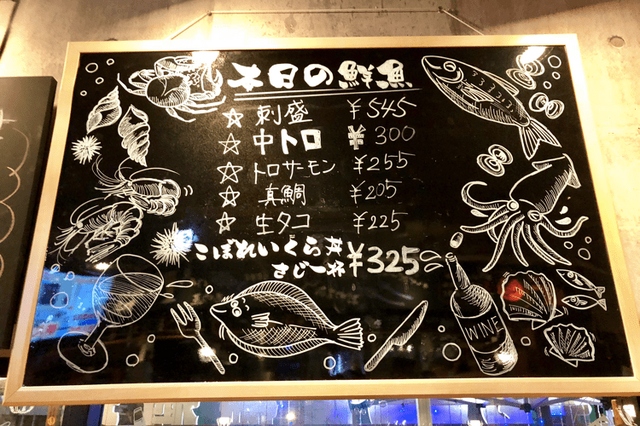 本日の鮮魚
☆ 刺盛 ¥545
☆ 中トロ ¥300
☆ トロサーモン ¥255
☆ 真鯛 ¥205
☆ 生タコ ¥225
こぼれいくら丼
さじ一杯 ¥325
WINE